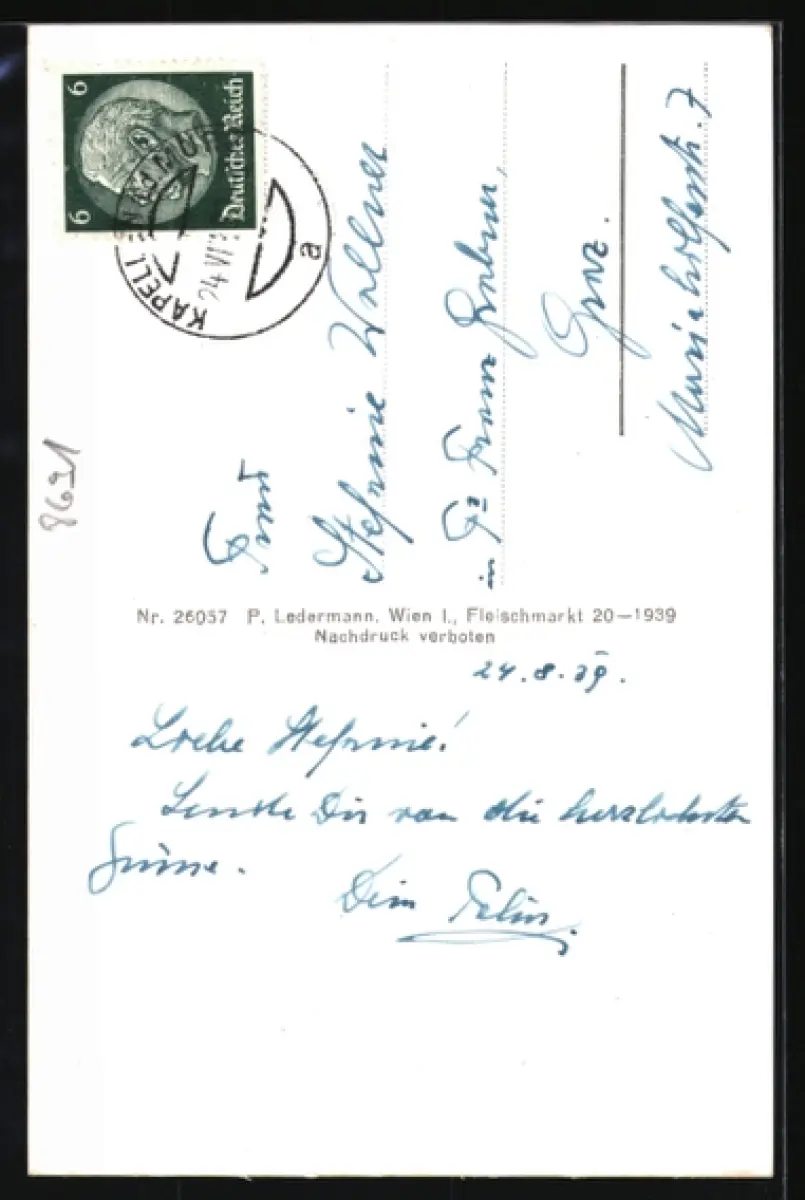 6 6
Deutsches Reich
24 VI
a
8691
Frau
Stefanie Wallner
in Fa Franz
Graz.
Mariahilferstr. 7
Nr. 26057 P. Ledermann, Wien I., Fleischmarkt 20—1939
Nachdruck verboten
24.8.39.
Liebe Stefanie!
Sende Dir von die herzlichsten
Grüsse.
Dein